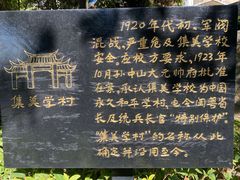 1920年代初，军阀
混战，严重危及集美学校
安全，应校方要求，1923年
10月孙中山大元帅府批准
在案，承认集美学校为中国
永久和平学村，电令闽粤省
长及统兵长官“特别保护”，
“集美学村”的名称从此
确定并沿用至今。
集美学村